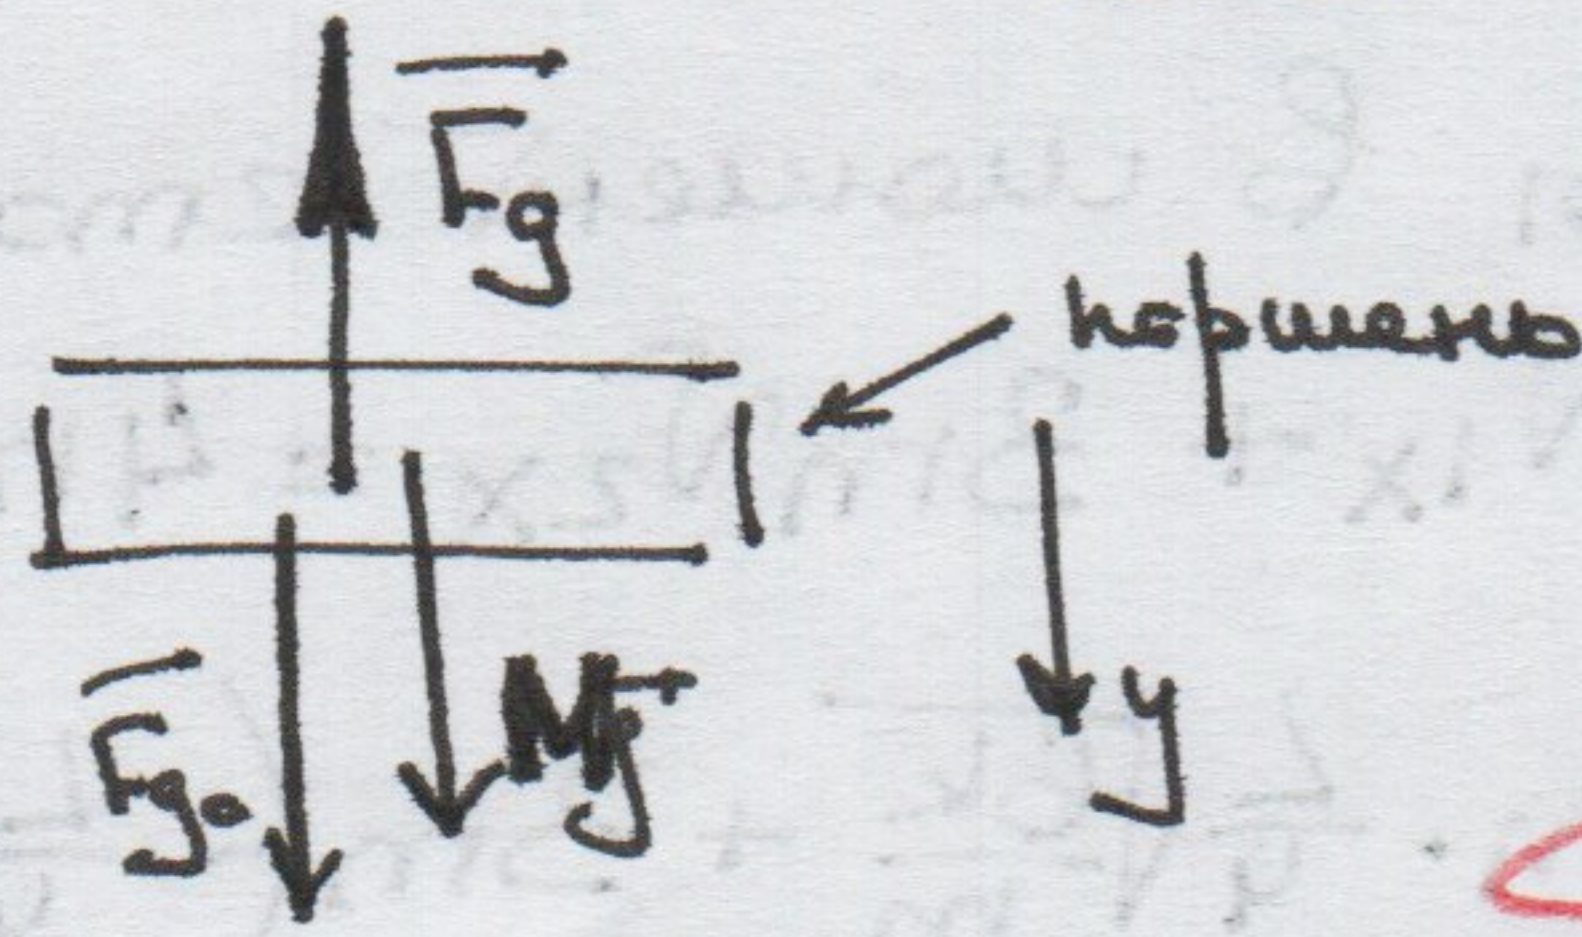 F⃗g
поршень
F⃗g₀
Mg⃗
y